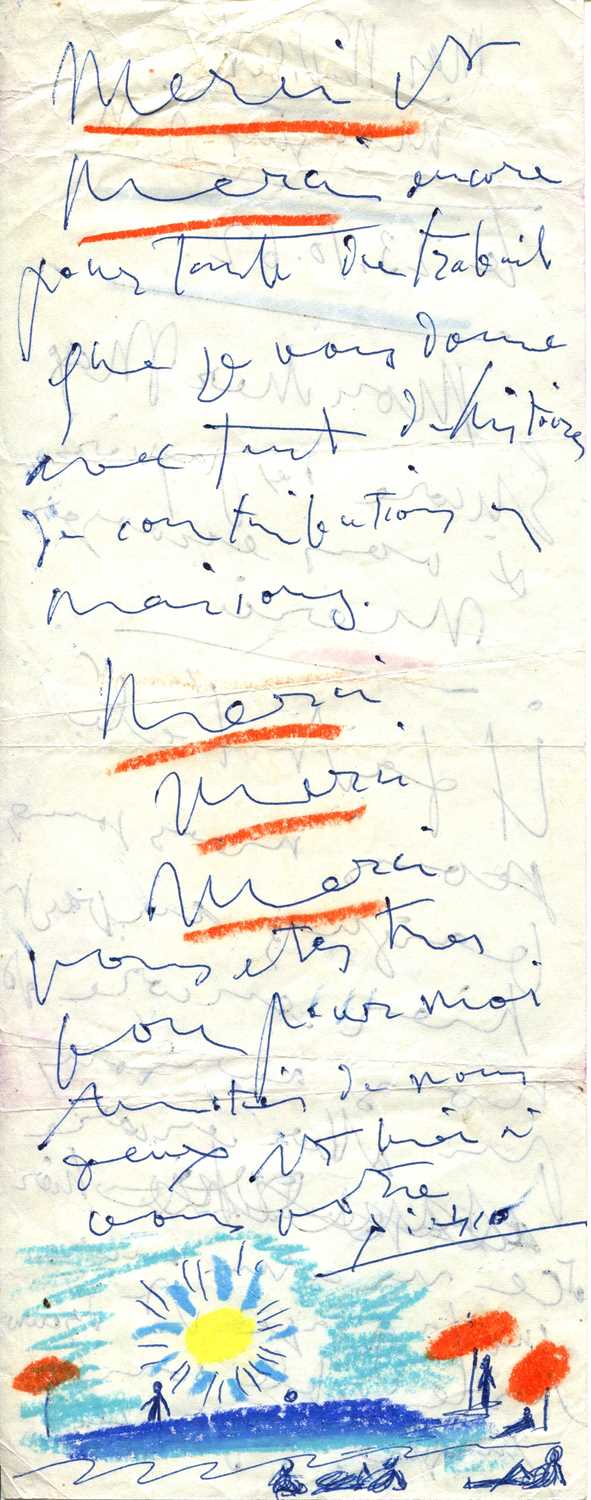 Merci et
Merci encore
pour toute du travail
que je vous donne
avec tout d'histoires
de contributions en
maisons.
Merci
Merci
Merci
vous etes tres
bon pour moi
Amitiés de nous
deux et bien à
vous votre
Picasso